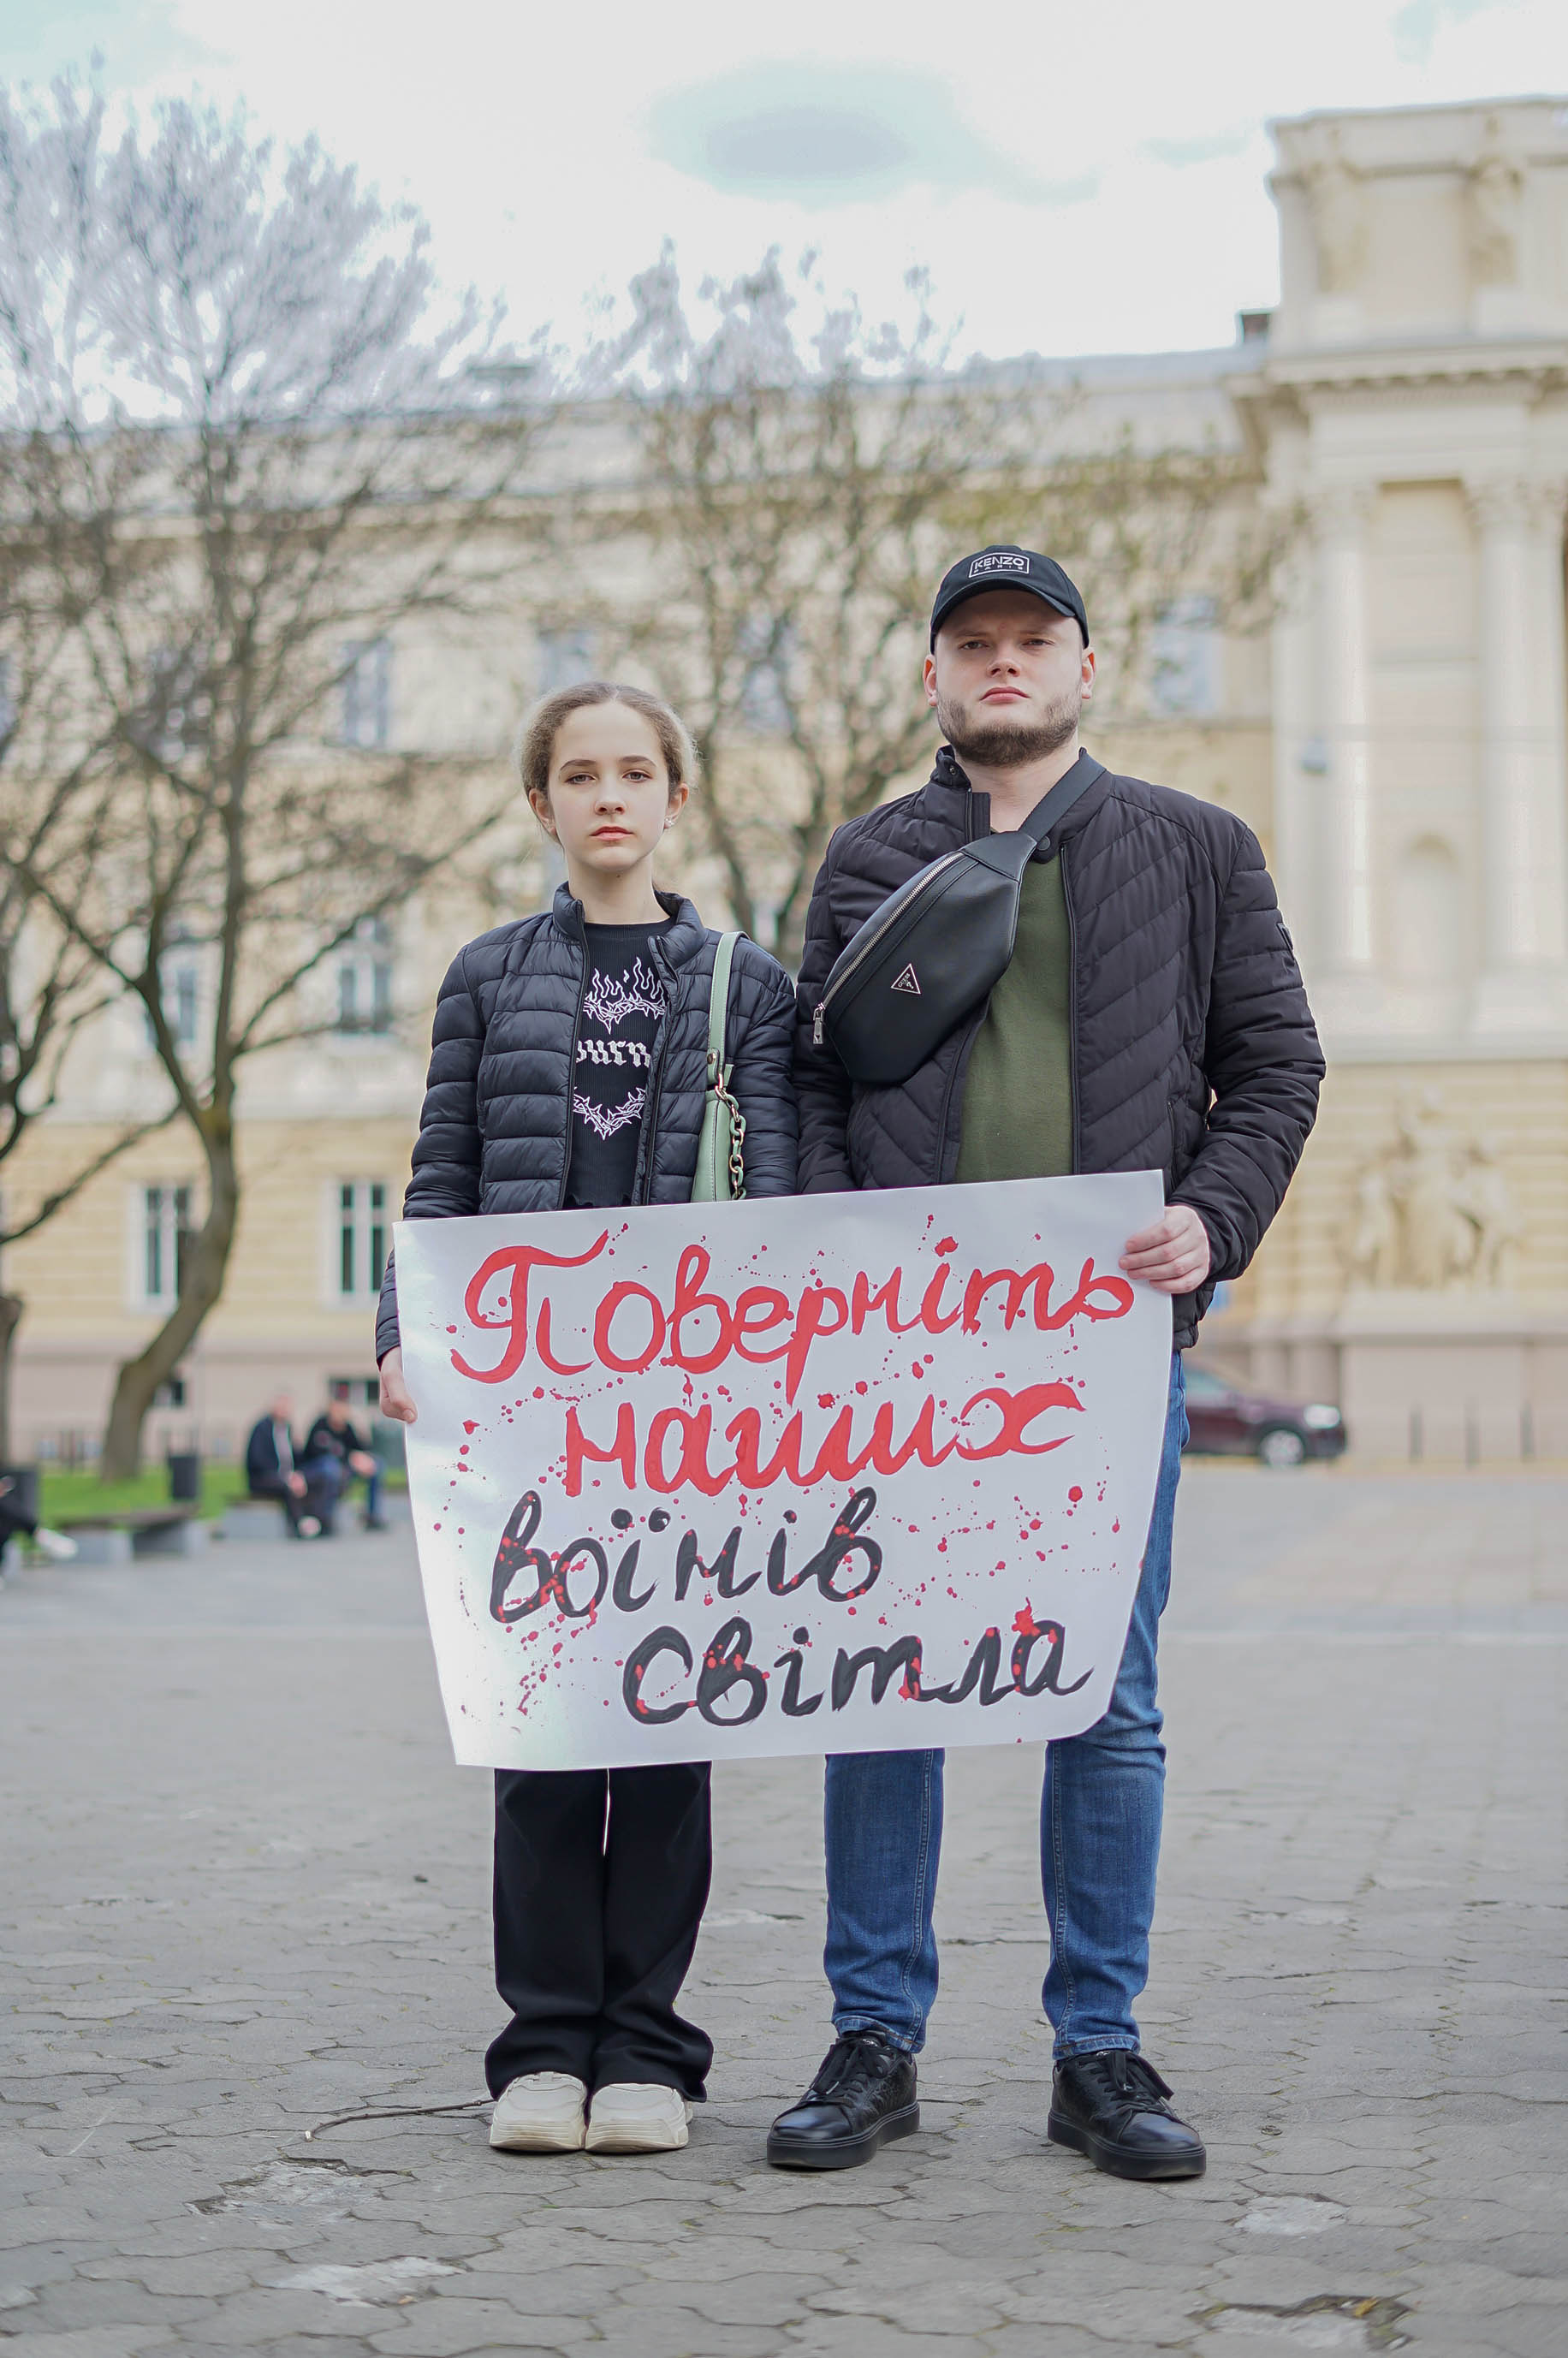 KENZO
PARIS
ourn
Поверніть
наших
воїнів
Світла